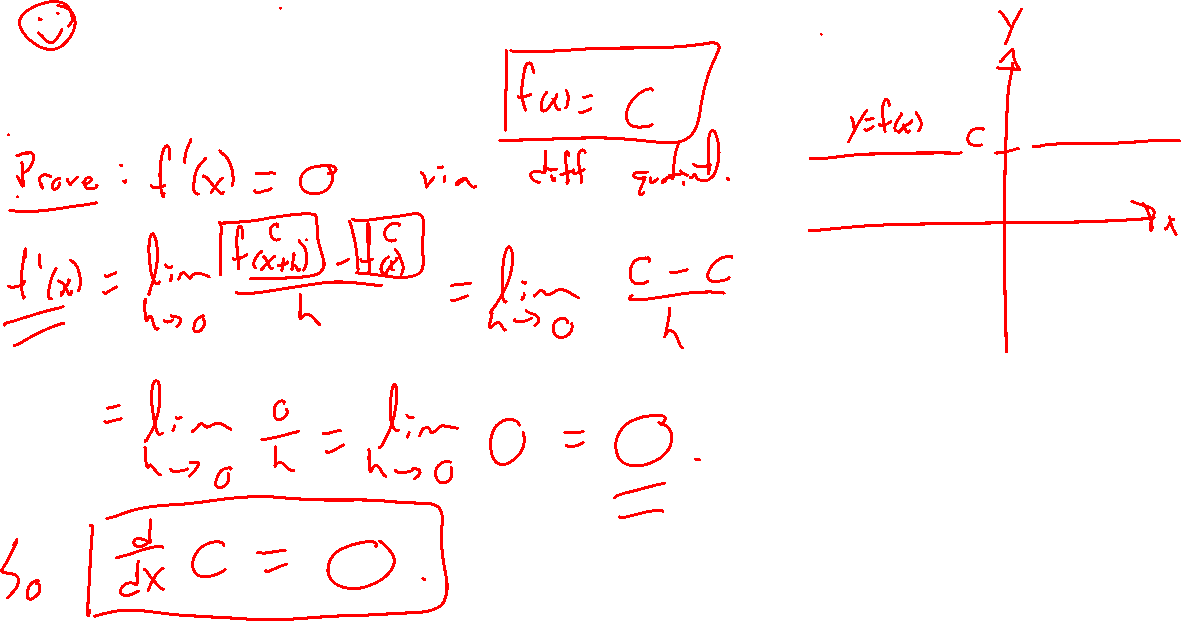 f(x) = C
Prove: f'(x) = 0 via diff quotient.
f'(x) = lim h→0 (f(x+h) - f(x))/h = lim h→0 (C - C)/h
C C
= lim h→0 0/h = lim h→0 0 = 0.
So d/dx C = 0.
y
y=f(x) C
x